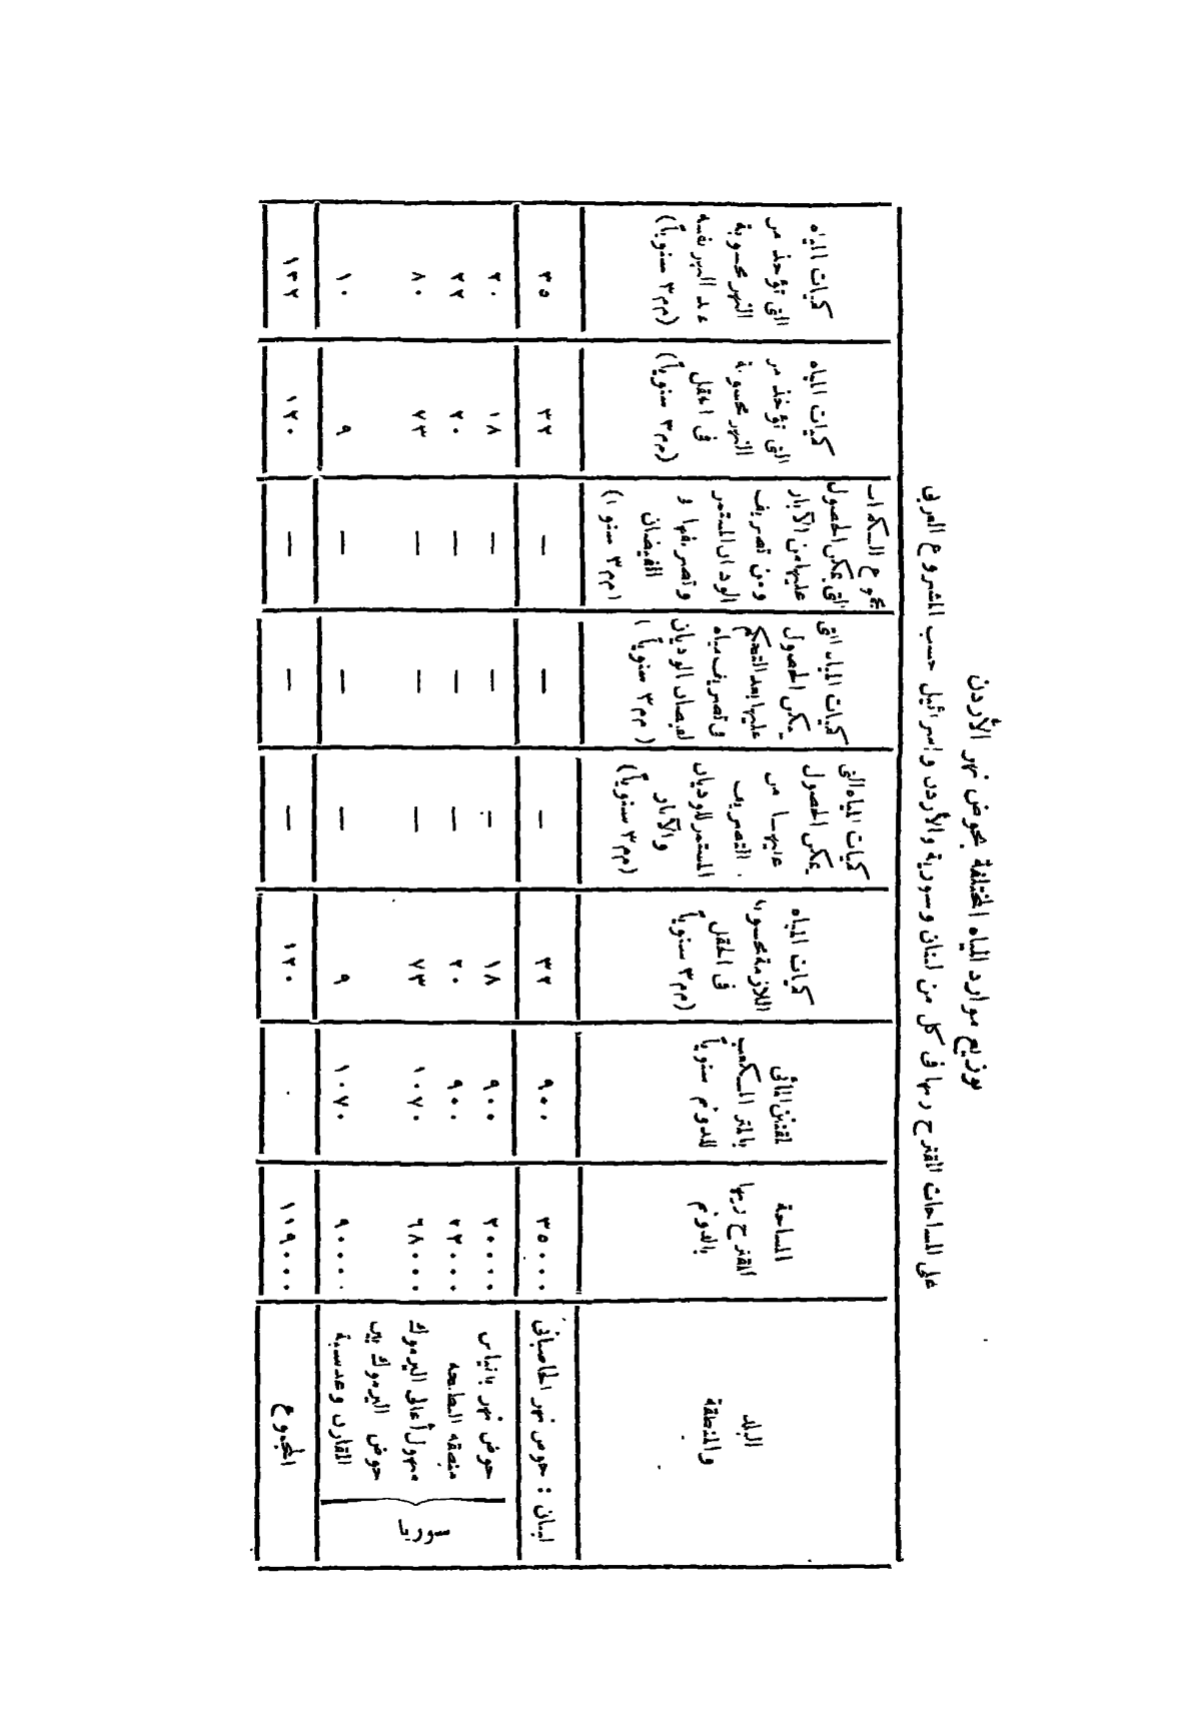 توزيع موارد المياه المختلفة بحوض نهر الأردن
على المساحات المقترح ريها فى كل من لبنان وسورية والأردن وإسرائيل حسب المشروع العربى
البلد
والمنطقة
المساحة
المقترح ريها
بالدونم
المقنن المائى
بالمتر المكعب
للدونم سنوياً
كميات المياه
اللازمة محسوبة
فى الحقل
(مم٣ سنوياً)
كميات المياه التى
يمكن الحصول
عليها من
التصريف
المستمر للوديان
والآبار
(مم٣ سنوياً)
كميات المياه التى
يمكن الحصول
عليها بعد التحكم
فى تصريف مياه
فيضان الوديان
(مم٣ سنوياً)
مجموع الكميات
التى يمكن الحصول
عليها من الآبار
ومن تصريف
الوديان المستمر
وتصريفها و
الفيضان
(مم٣ سنويا)
كميات المياه
التى تؤخذ من
النهر محسوبة
فى الحقل
(مم٣ سنوياً)
كميات المياه
التى تؤخذ من
النهر محسوبة
عند النهر نفسه
(مم٣ سنوياً)
لبنان : حوض نهر الحاصبانى ٣٥٠٠٠ ٩٠٠ ٣٢ — — — ٣٢ ٣٥
سوريا
حوض نهر بانياس ٢٠٠٠٠ ٩٠٠ ١٨ — — — ١٨ ٢٠
منطقة البطيحه ٢٢٠٠٠ ٩٠٠ ٢٠ — — — ٢٠ ٢٢
سهول أعالى اليرموك ٦٨٠٠٠ ١٠٧٠ ٧٣ — — — ٧٣ ٨٠
حوض اليرموك بين
المقارن وعدسية ٩٠٠٠ ١٠٧٠ ٩ — — — ٩ ١٠
المجموع ١١٩٠٠٠ ١٢٠ — — — ١٢٠ ١٣٢